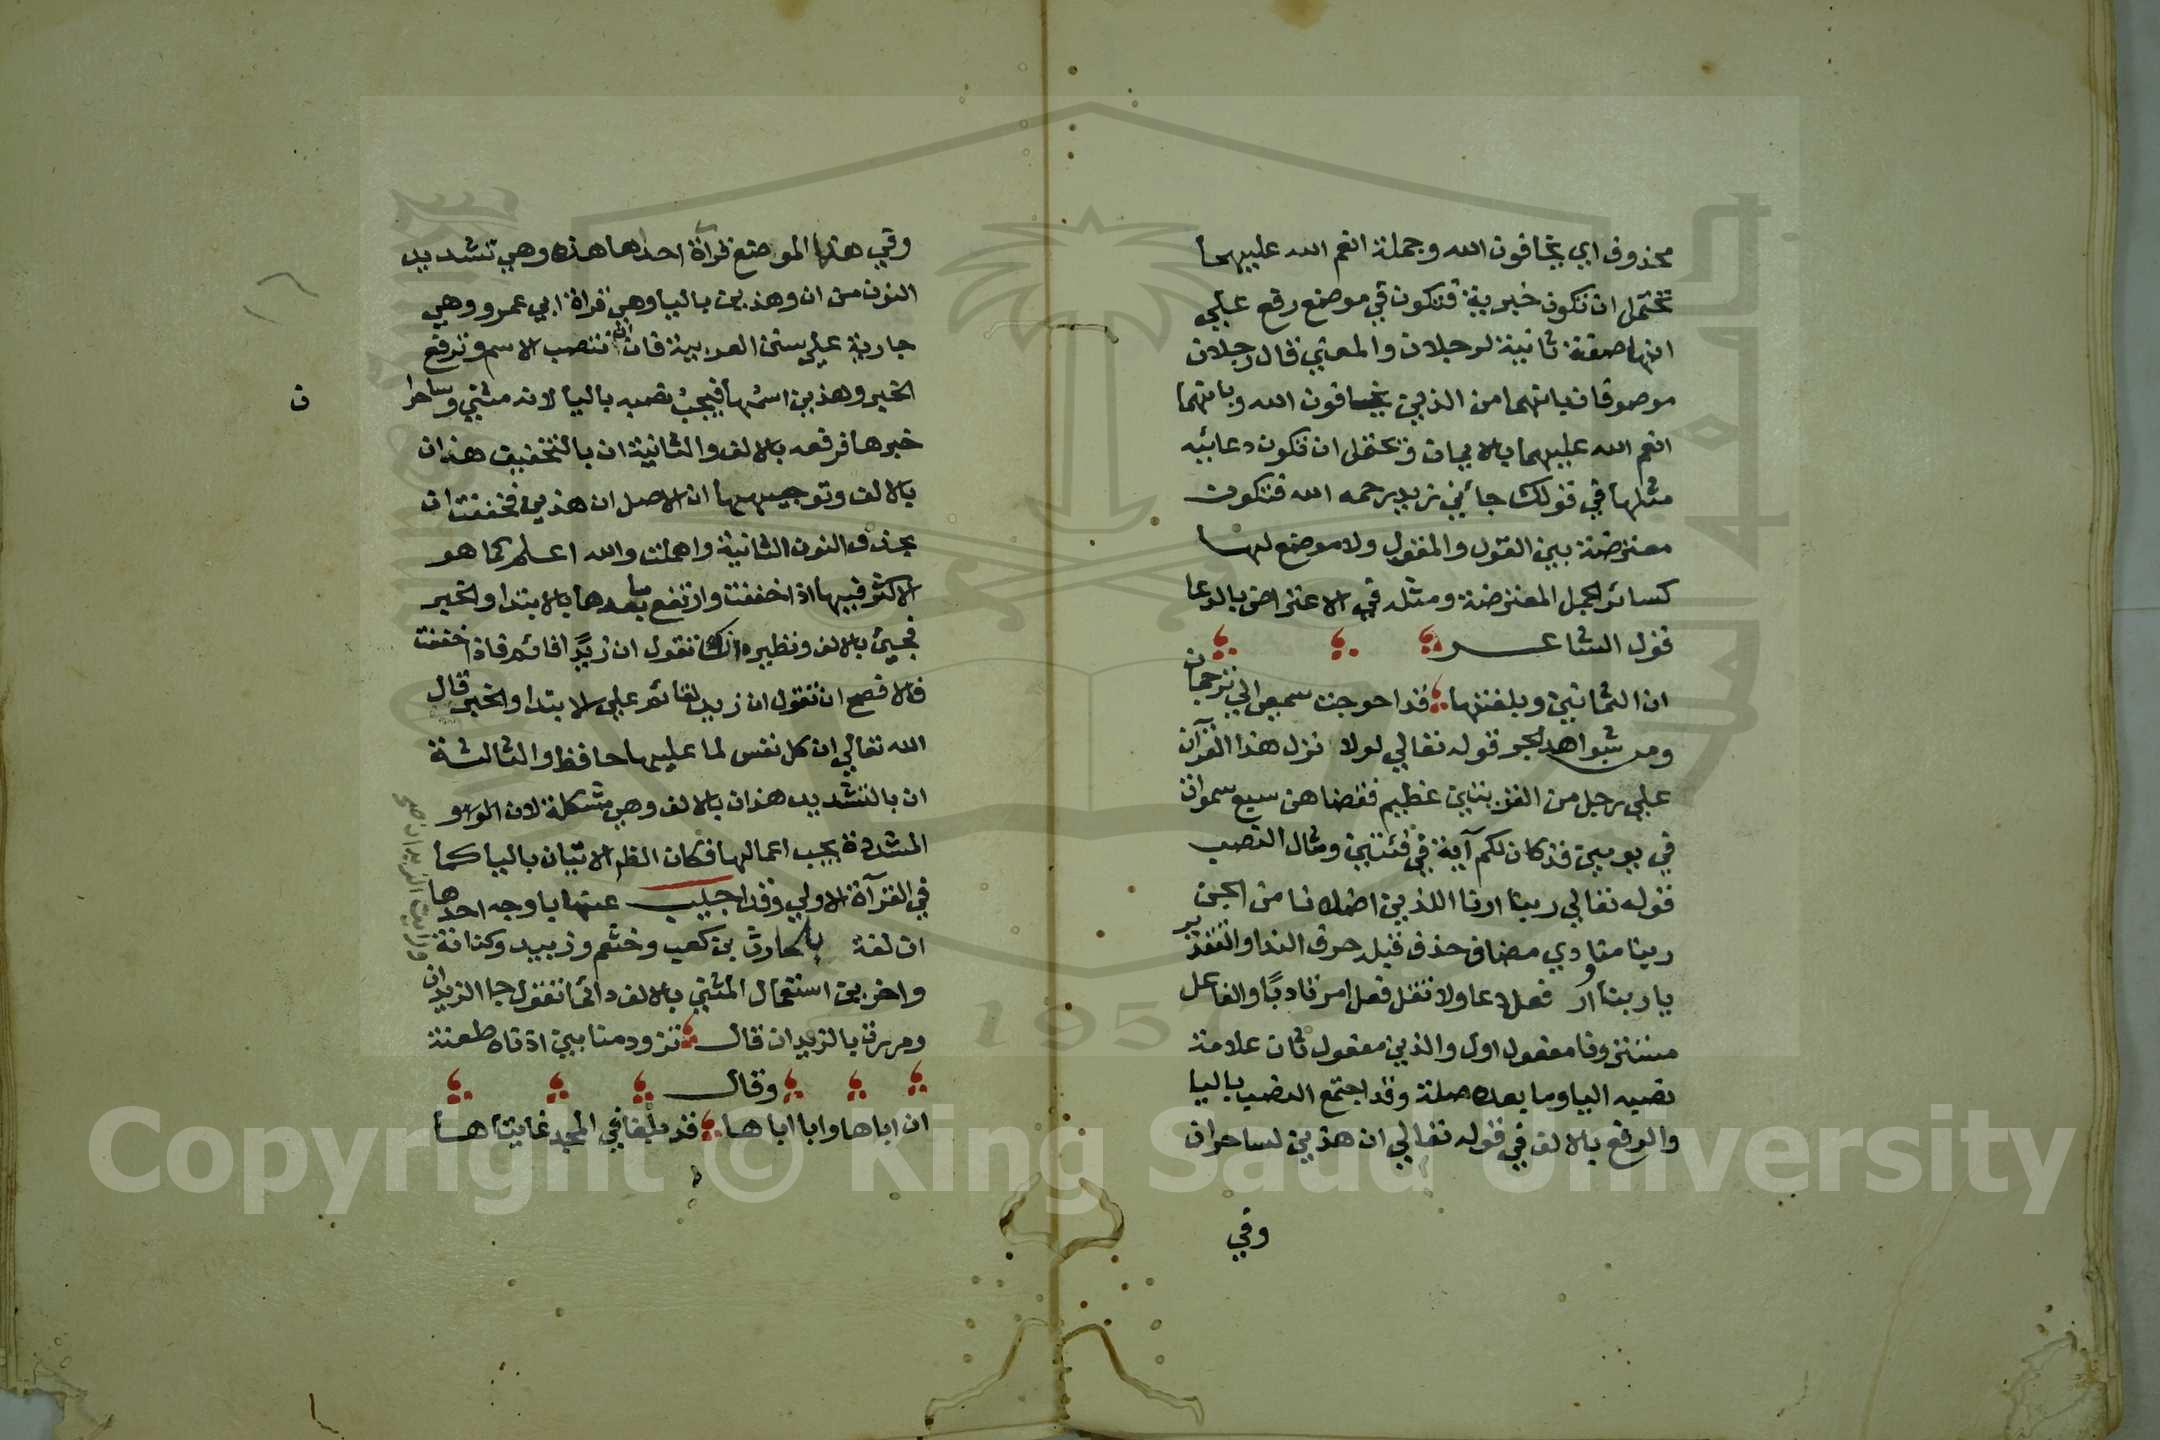 محذوف اي يخافون الله وجملة انعم الله عليهما
تحتمل ان تكون خبرية فتكون في موضع رفع علي
انها صفة ثانية لرجلان والمعني قال رجلان
موصوفان بانهما من الذين يخافون الله وبانهما
انعم الله عليهما بالايمان وتحتمل ان تكون دعائيه
مثلها في قولك جائني زيد يرحمه الله فتكون
معترضة بين القول والمقول ولا موضع لها
كسائر الجمل المعترضة ومثله في الاعتراض بالدعا
قول الشاعر
ان الثمانين وبلغتها قد احوجت سمعي الي ترجمان
ومن شواهد الجر قوله تعالي لولا نزل هذا القرآن
علي رجل من القريتين عظيم فقضاهن سبع سموات
في يومين قد كان لكم آية في فئتين ومثال النصب
قوله تعالي ربنا ارنا اللذين اضلانا من الجن
ربنا منادي مضاف حذف قبله حرف الندا والتقدير
يا ربنا وار فعل دعا ولا تقل فعل امر تادبًا والفاعل
مستتر ونا مفعول اول والذين مفعول ثان علامة
نصبه اليا وما بعده صلة وقد اجتمع النصب باليا
والرفع بالالف في قوله تعالي ان هذين لساحران
وفي
وفي هذا الموضع قرآة احداها هذه وهي تشديد
النون من ان وهذين باليا وهي قراة ابي عمرو وهي
جارية علي سنن العربية فان ان تنصب الاسم وترفع
الخبر وهذين اسمها فيجب نصبه باليا لانه مثني وساحرا
ن
خبرها فرفعه بالالف والثانية ان بالتخفيف هذان
بالالف وتوجيهها ان الاصل ان هذين فخففت ان
بحذف النون الثانية واهملت والله اعلم كما هو
الاكثر فيها اذا خففت وارتفع ما بعدها بالابتدا والخبر
فجيئ بالالف ونظيره انك تقول ان زيدًا قائم فاذا خففت
فالافصح ان تقول ان زيد لقائم علي الابتدا والخبر قال
الله تعالي ان كل نفس لما عليها حافظ والثالثة
ان بالتشديد هذان بالالف وهي مشكلة لان
المشددة يجب اعمالها فكان الظم الاتيان باليا كما
في القرآة الاولي وقد اجيب عنها باوجه احدها
ان لغة بالحارث بن كعب وخثعم وزبيد وكنانة
واخرين استعمال المثني بالالف دائما تقول جا الزيدان
ومررت بالزيدان قال تزود منا بين اذناه طعنة
وقال
ان اباها وابا اباها قد بلغا في المجد غايتاها